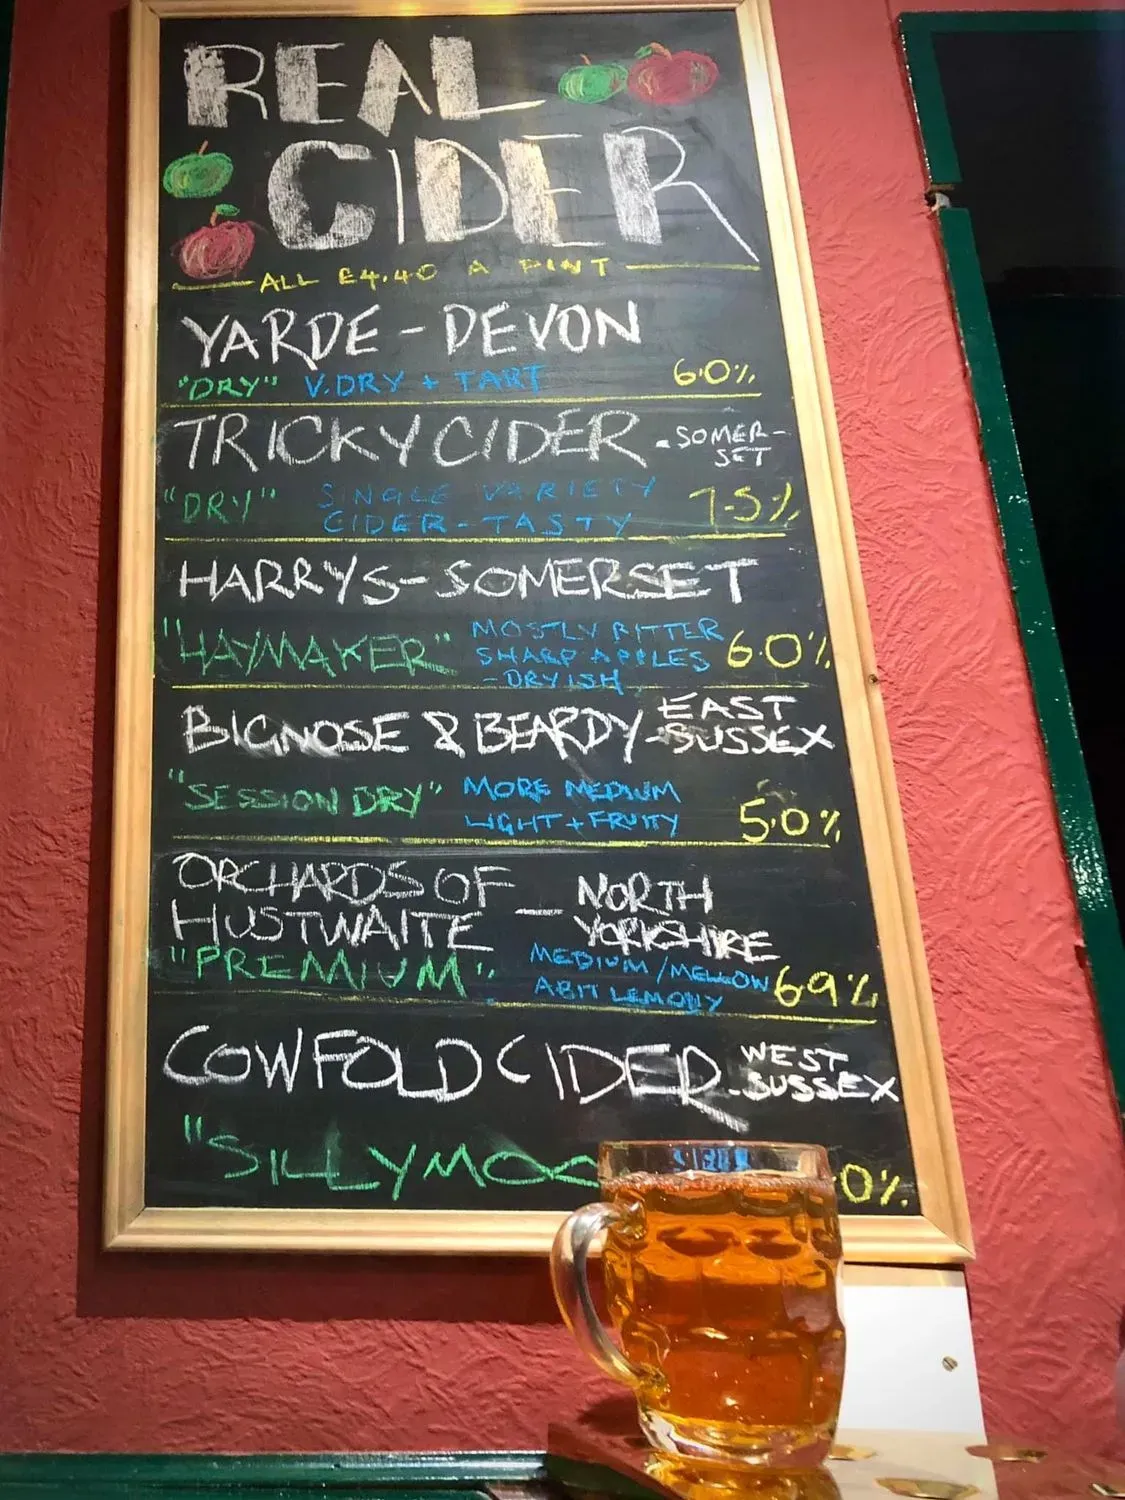 REAL
CIDER
ALL £4.40 A PINT
YARDE - DEVON
"DRY" V.DRY + TART 6.0%
TRICKY CIDER - SOMER-
SET
"DRY" SINGLE VARIETY
CIDER - TASTY 7.5%
HARRYS - SOMERSET
"HAYMAKER" MOSTLY BITTER
SHARP APPLES 6.0%
- DRYISH
BIGNOSE & BEARDY - EAST
SUSSEX
"SESSION DRY" MORE MEDIUM
LIGHT + FRUITY 5.0%
ORCHARDS OF
HUSTWAITE - NORTH
YORKSHIRE
"PREMIUM" MEDIUM/MELLOW
A BIT LEMONY 6.9%
COWFOLD CIDER - WEST
SUSSEX
"SILLY MOO .0%